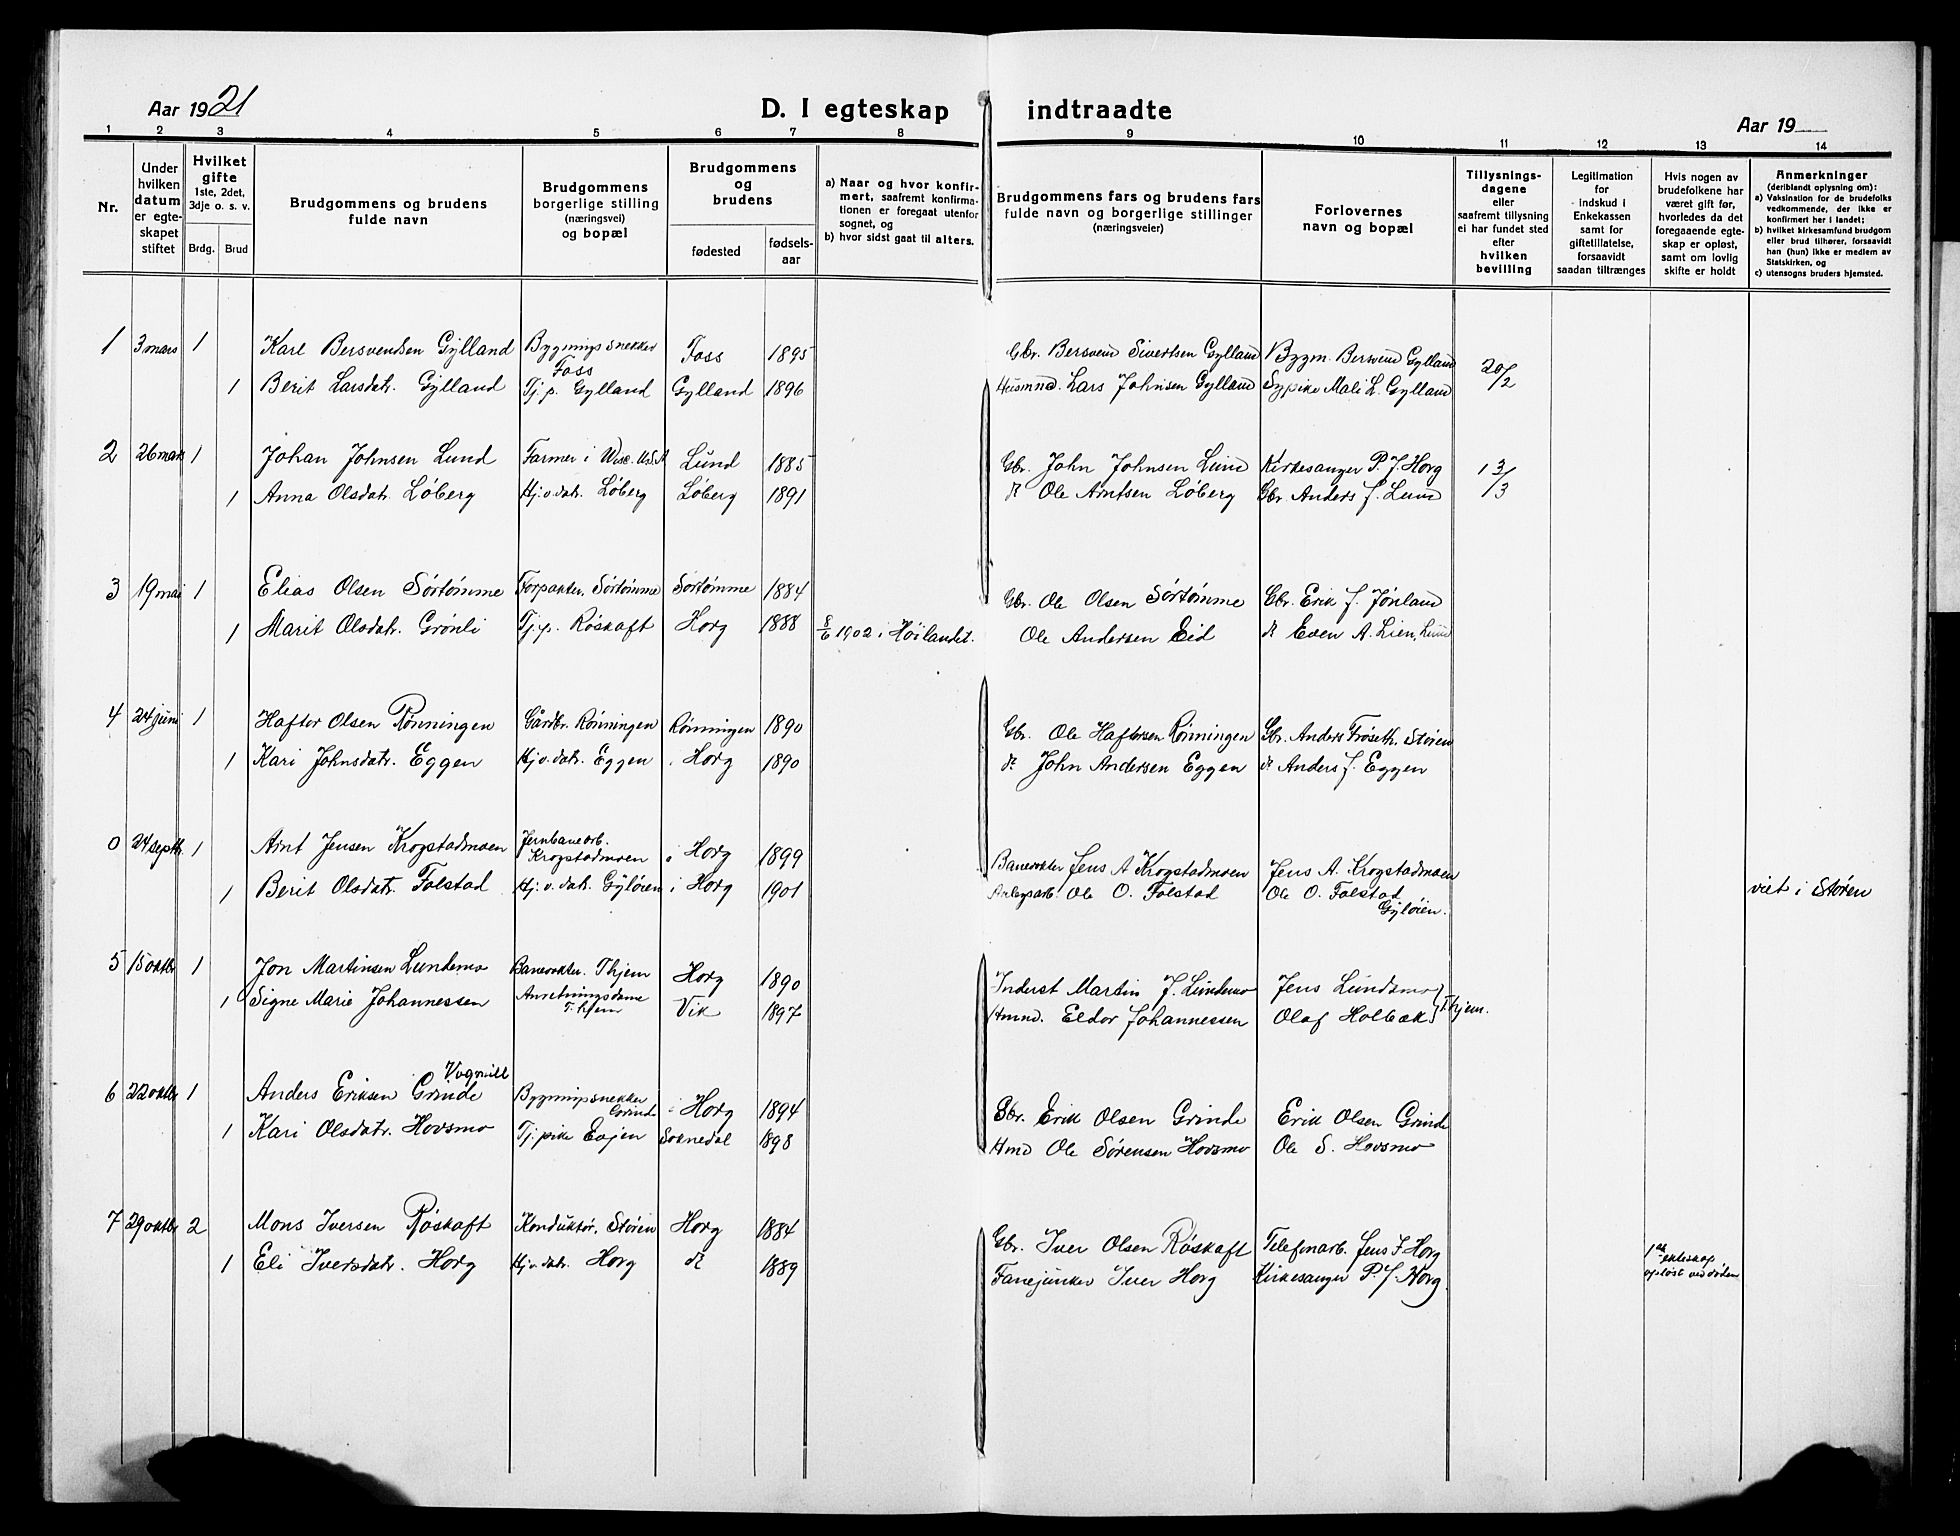 Aar 1921
D. I egteskap indtraadte
Aar 19
1 2 3 4 5 6 7 8 9 10 11 12 13 14
Nr.
Under hvilken datum er egteskapet stiftet
Hvilket gifte 1ste, 2det, 3dje o. s. v.
Brdg. Brud
Brudgommens og brudens fulde navn
Brudgommens borgerlige stilling (næringsvei) og bopæl
Brudgommens og brudens
fødested
fødsels-aar
a) Naar og hvor konfirmert, saafremt konfirmationen er foregaat utenfor sognet, og
b) hvor sidst gaat til alters.
Brudgommens fars og brudens fars fulde navn og borgerlige stillinger (næringsveier)
Forlovernes navn og bopæl
Tillysnings-dagene eller saafremt tillysning ei har fundet sted efter hvilken bevilling
Legitimation for indskud i Enkekassen samt for giftetillatelse, forsaavidt saadan tiltrænges
Hvis nogen av brudefolkene har været gift før, hvorledes da det foregaaende egteskap er opløst, samt om lovlig skifte er holdt
Anmerkninger (deriblandt oplysning om):
a) Vaksination for de brudefolks vedkommende, der ikke er konfirmert her i landet;
b) hvilket kirkesamfund brudgom eller brud tilhører, forsaavidt han (hun) ikke er medlem av Statskirken, og
c) utensogns bruders hjemsted.
1 3 mars 1 Karl Bersvendsen Gylland Bygningssnekker Foss Foss 1895 Gbr. Bersvend Sivertsen Gylland Bygm. Bersvend Gylland 20/2
1 Berit Larsdatr. Gylland Tj.p. Gylland Gylland 1896 Husmnd. Lars Johnsen Gylland Sypike Mali L. Gylland
2 26 mars 1 Johan Johnsen Lund Farmer i Wisc. U.S.A Lund 1885 Gbr. John Johnsen Lund Kirkesanger P. J. Horg 13/3
1 Anna Olsdatr. Løberg Hj.v.datr. Løberg Løberg 1891 dº Ole Arntsen Løberg Gbr. Anders J. Lund
3 19 mai 1 Elias Olsen Sørtømme Forpakter. Sørtømme Sørtømme 1884 Gbr. Ole Olsen Sørtømme Gbr. Erik J. Jönland
1 Marit Olsdatr. Grønli Tj.p. Røskaft Horg 1888 8/6 1902 i Høilandet. Ole Andersen Eid dº Even A. Lien, Lund
4 24 juni 1 Haftor Olsen Rønningen Gårdbr. Rønningen Rønningen 1890 Gbr. Ole Haftorsen Rønningen Gbr. Anders Frøseth. Støren
1 Kari Johnsdatr. Eggen Hj.v.datr. Eggen i Horg 1890 dº John Andersen Eggen dº Anders J. Eggen
0 24 septb. 1 Arnt Jensen Krogstadmoen Jernbanearb. Krogstadmoen i Horg 1899 Banevokter Jens A Krogstadmoen Jens A. Krogstadmoen
1 Berit Olsdatr. Folstad Hj.v.datr. Gyløien i Horg 1901 Anlegsarb. Ole O. Folstad Ole O. Folstad Gyløien. viet i Støren
5 15 oktbr 1 Jon Martinsen Lundemo Banevokter. Thjem Horg 1890 Inderst Martin J. Lundemo Jens Lundemo } Thjem.
1 Signe Marie Johannessen Anretningsdame T.hjem Vik 1897 Hmnd. Eldor Johannessen Olaf Holbæk
6 22 oktbr 1 Anders Eriksen Grinde Vognill Bygningssnekker Grinde i Horg 1894 Gbr. Erik Olsen Grinde Erik Olsen Grinde
1 Kari Olsdatr. Hovsmo Tj.pike Evjen Soknedal 1898 Hmd Ole Sørensen Hovsmo Ole S. Hovsmo
7 29 oktbr 2 Mons Iversen Røskaft Konduktør. Støren Horg 1884 Gbr. Iver Olsen Røskaft Telefonarb. Jens I Horg
1 Eli Iversdatr. Horg Hj.v.datr. Horg dº 1889 Fanejunker Iver Horg Kirkesanger P. J. Horg. 1ste ekteskap opløst ved døden